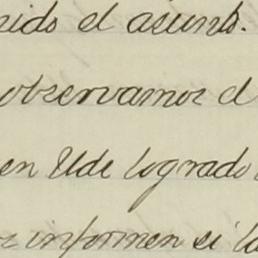 nido el asunto.
observamos el
en Uds logrado
informen si la